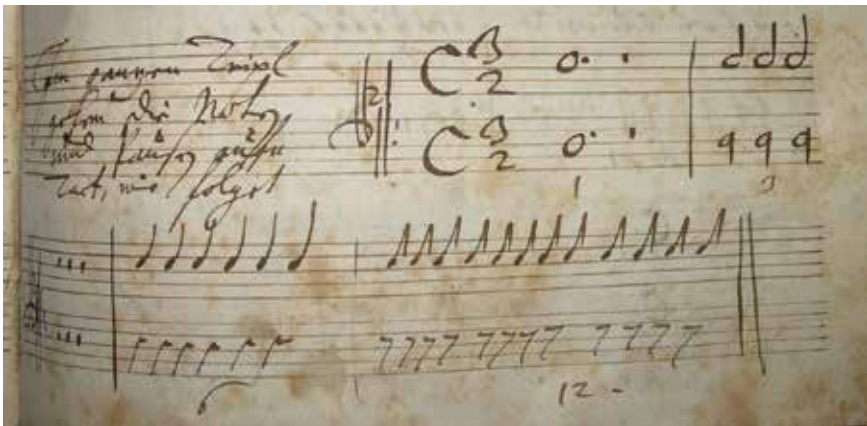 Im ganzen Tripl
gehen die Noten
und Pausen auf den
Tact, wie folget
2
C 3 2
C 3 2
1 3
6 12 -